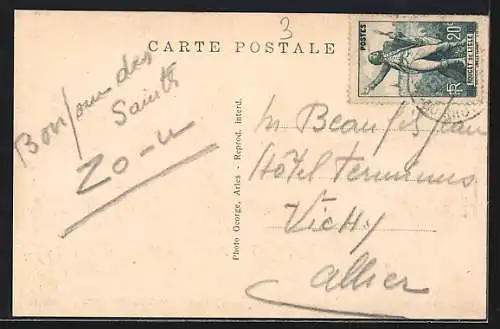 3
CARTE POSTALE
POSTES
20c
ROUGET DE LISLE
RF
Bonjour des
Saints
Zo-u
Photo George, Arles - Reprod. interd.
Mr
Hôtel Terminus
Vichy
Allier